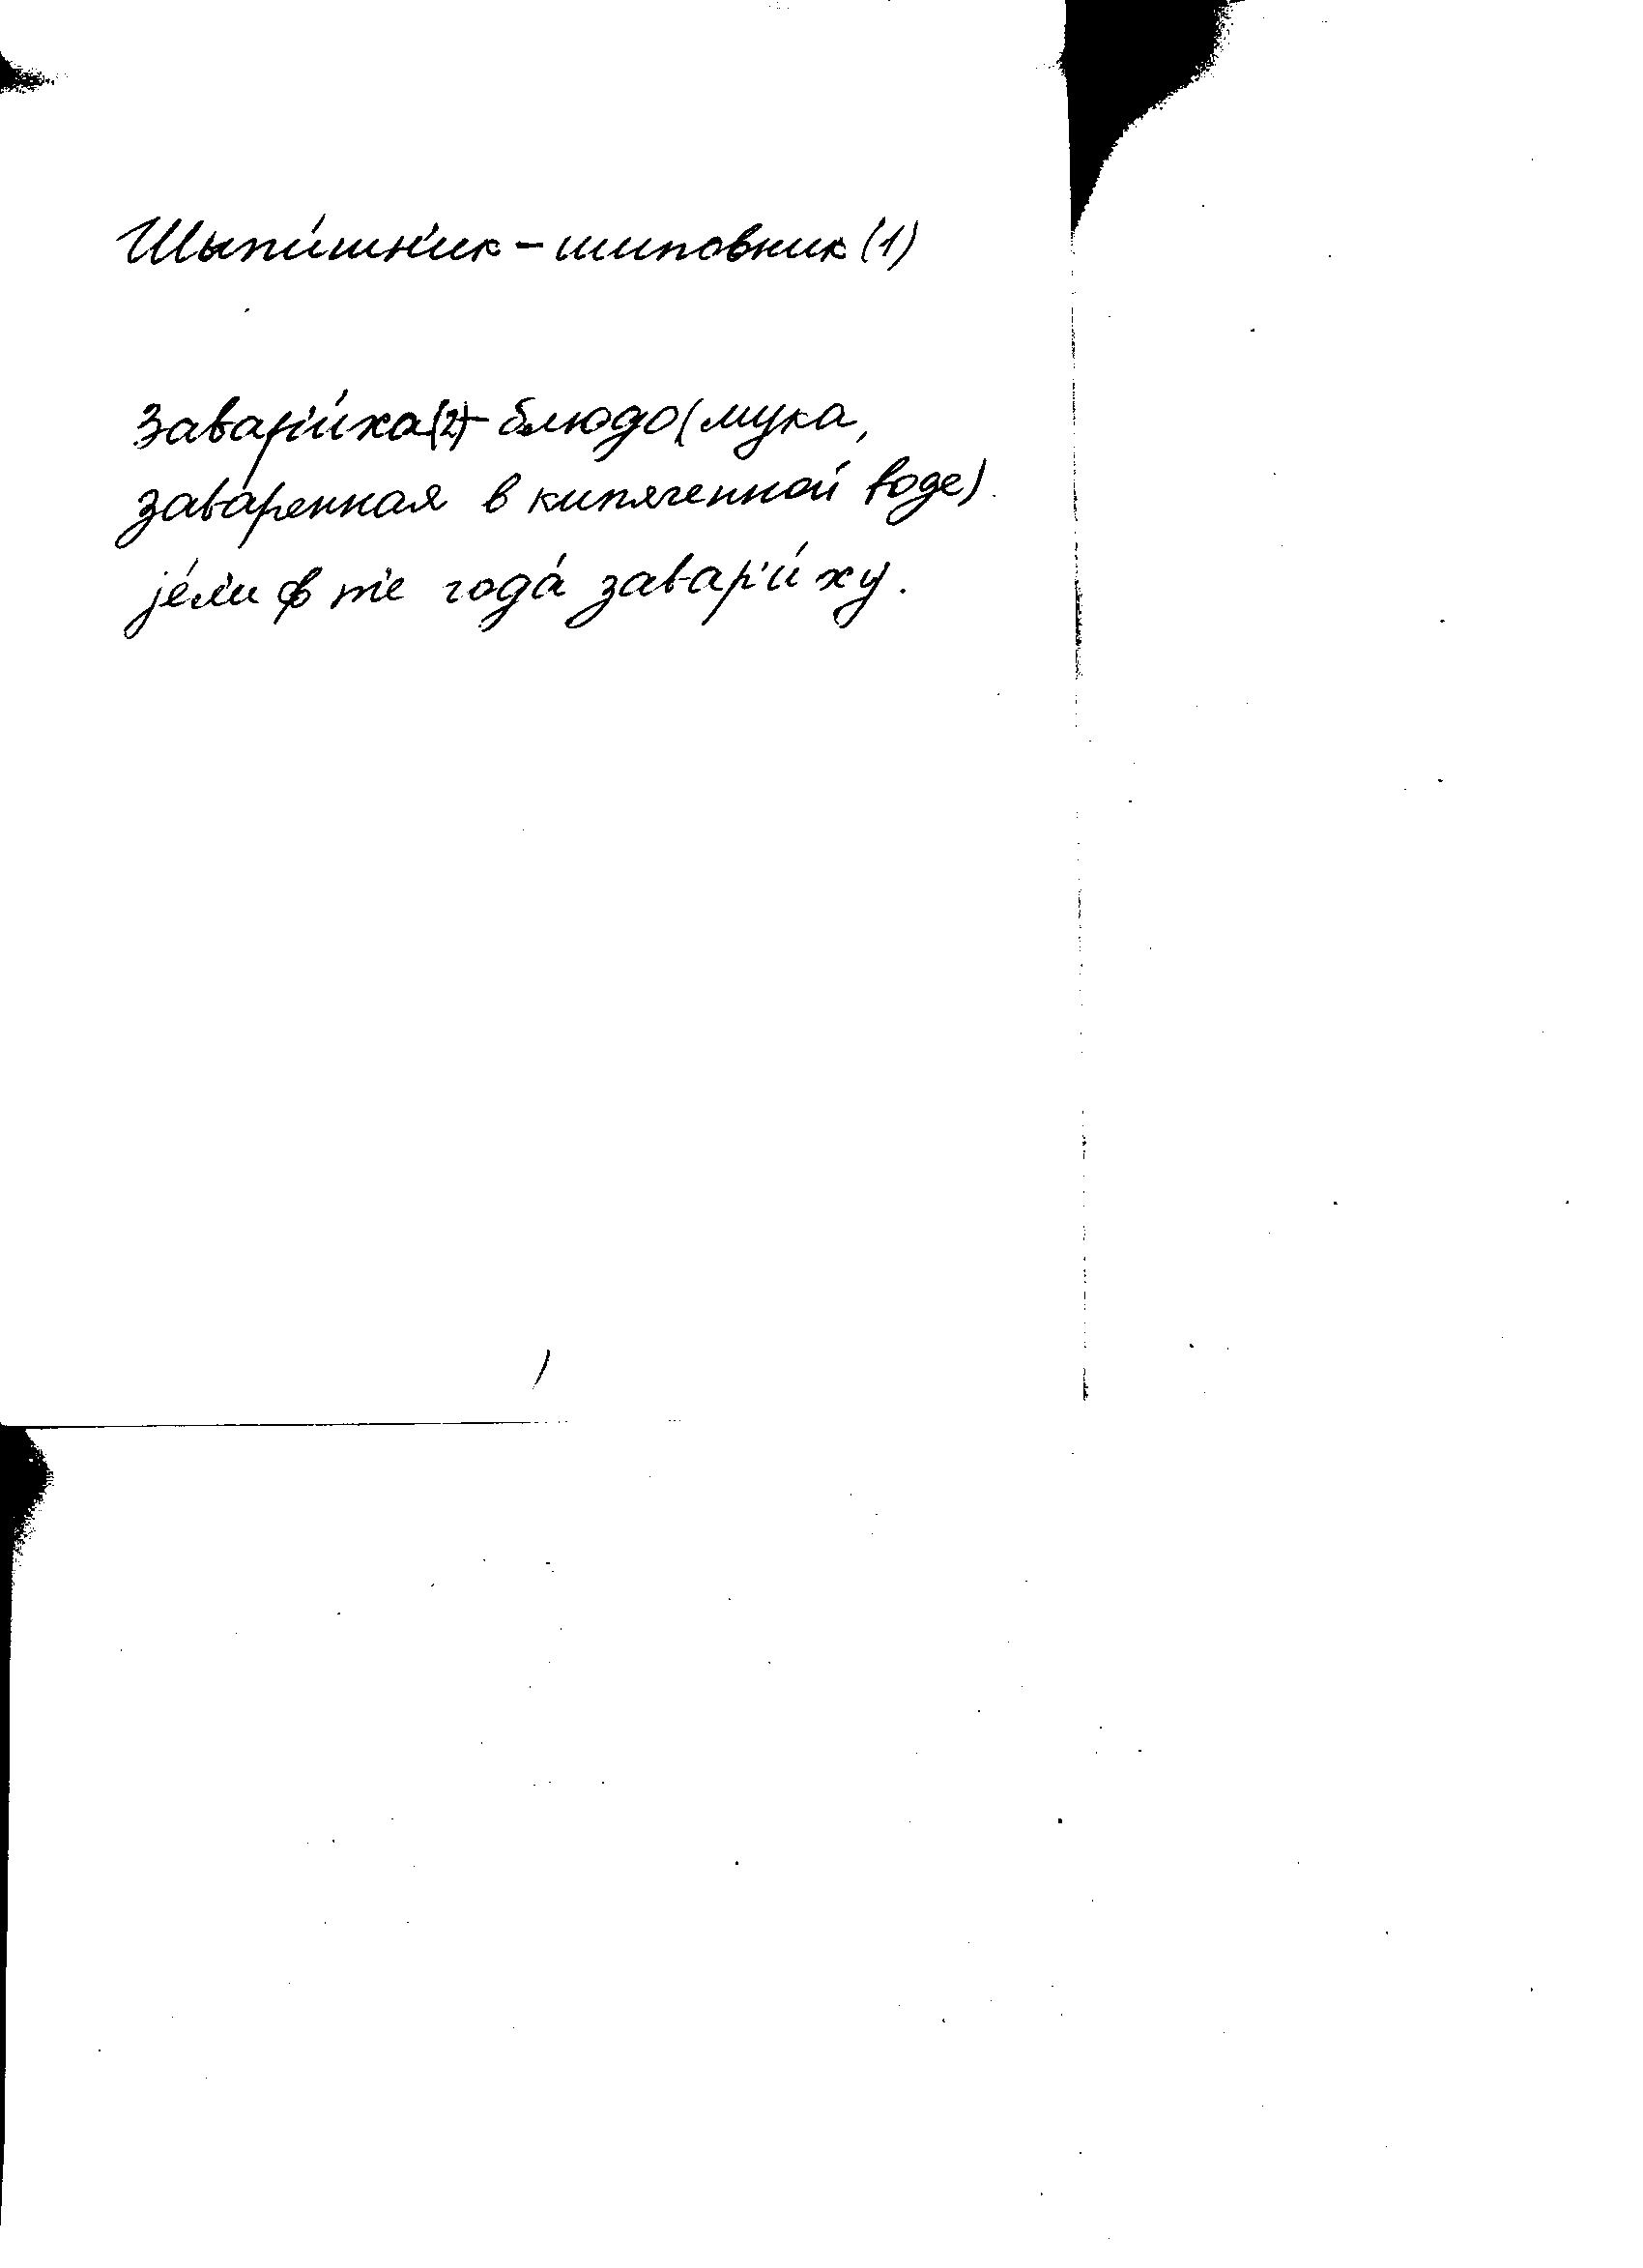 Шыпи́шн'ик - шиповник (1)
Завар'и́ха (2) - блюдо (мука,
зава́ренная в кипяченной воде).
jе́л'и ф т'е года́ завар'и́ху.